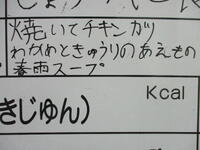 焼いてチキンカツ
わかめときゅうりのあえもの
春雨スープ
Kcal
きじゅん)